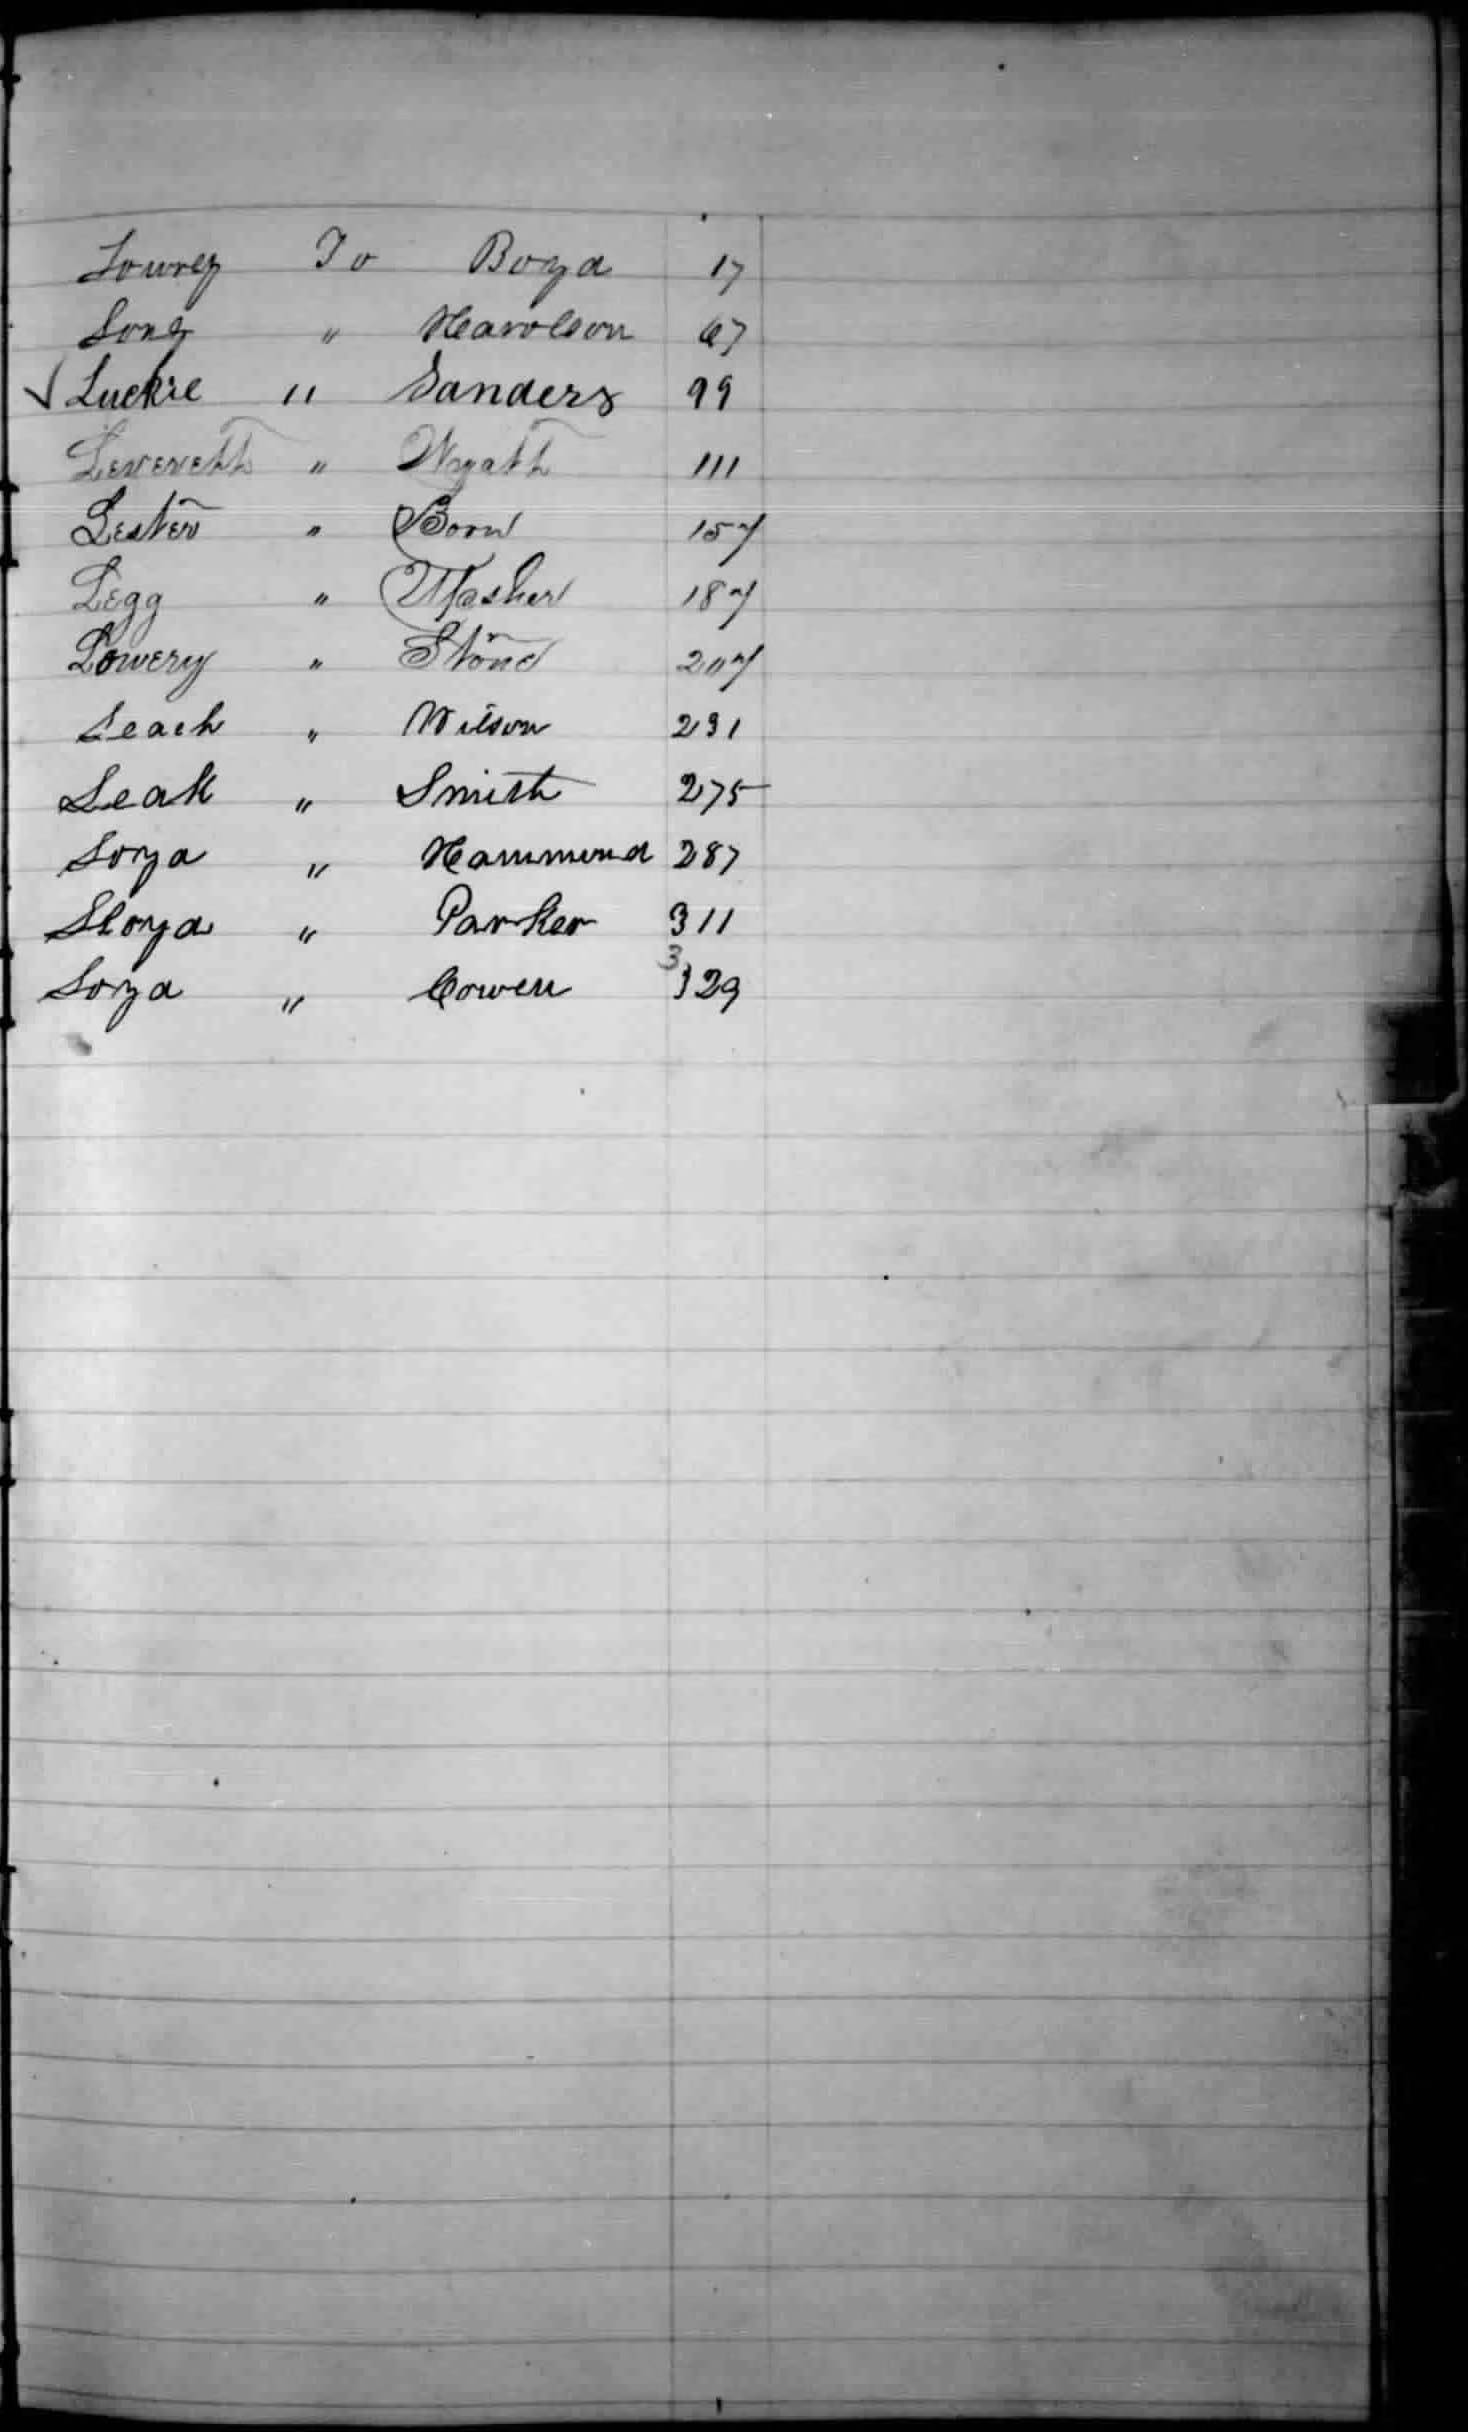 Lowrey To Boyd 17
Long " Harolson 67
✓ Luckie " Sanders 99
Leverett " Wyatt 111
Lester " Born 157
Legg " Mosher 187
Lowery " Stone 207
Leach " Wilson 231
Leak " Smith 275
Loyd " Hammond 287
Lloyd " Parker 311
Loyd " Cowen 329